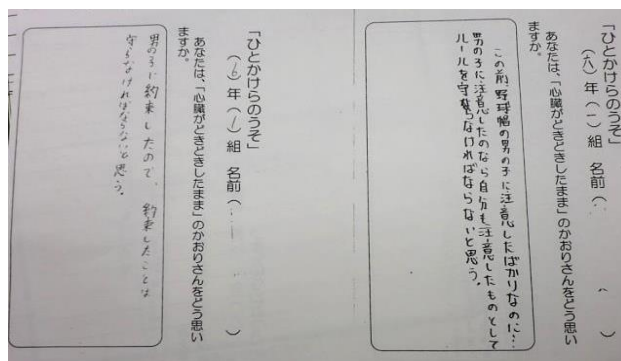 「ひとかけらのうそ」
(六)年(一)組 名前(
)
あなたは、「心臓がどきどきしたまま」のかおりさんをどう思い
ますか。
この前野球帽の男の子に注意したばかりなのに…
男の子に注意したのなら自分も注意したものとして
ルールを守らなければならないと思う。
「ひとかけらのうそ」
(6)年(1)組 名前(
)
あなたは、「心臓がどきどきしたまま」のかおりさんをどう思い
ますか。
男の子に約束したので、約束したことは
守らなければならないと思う。